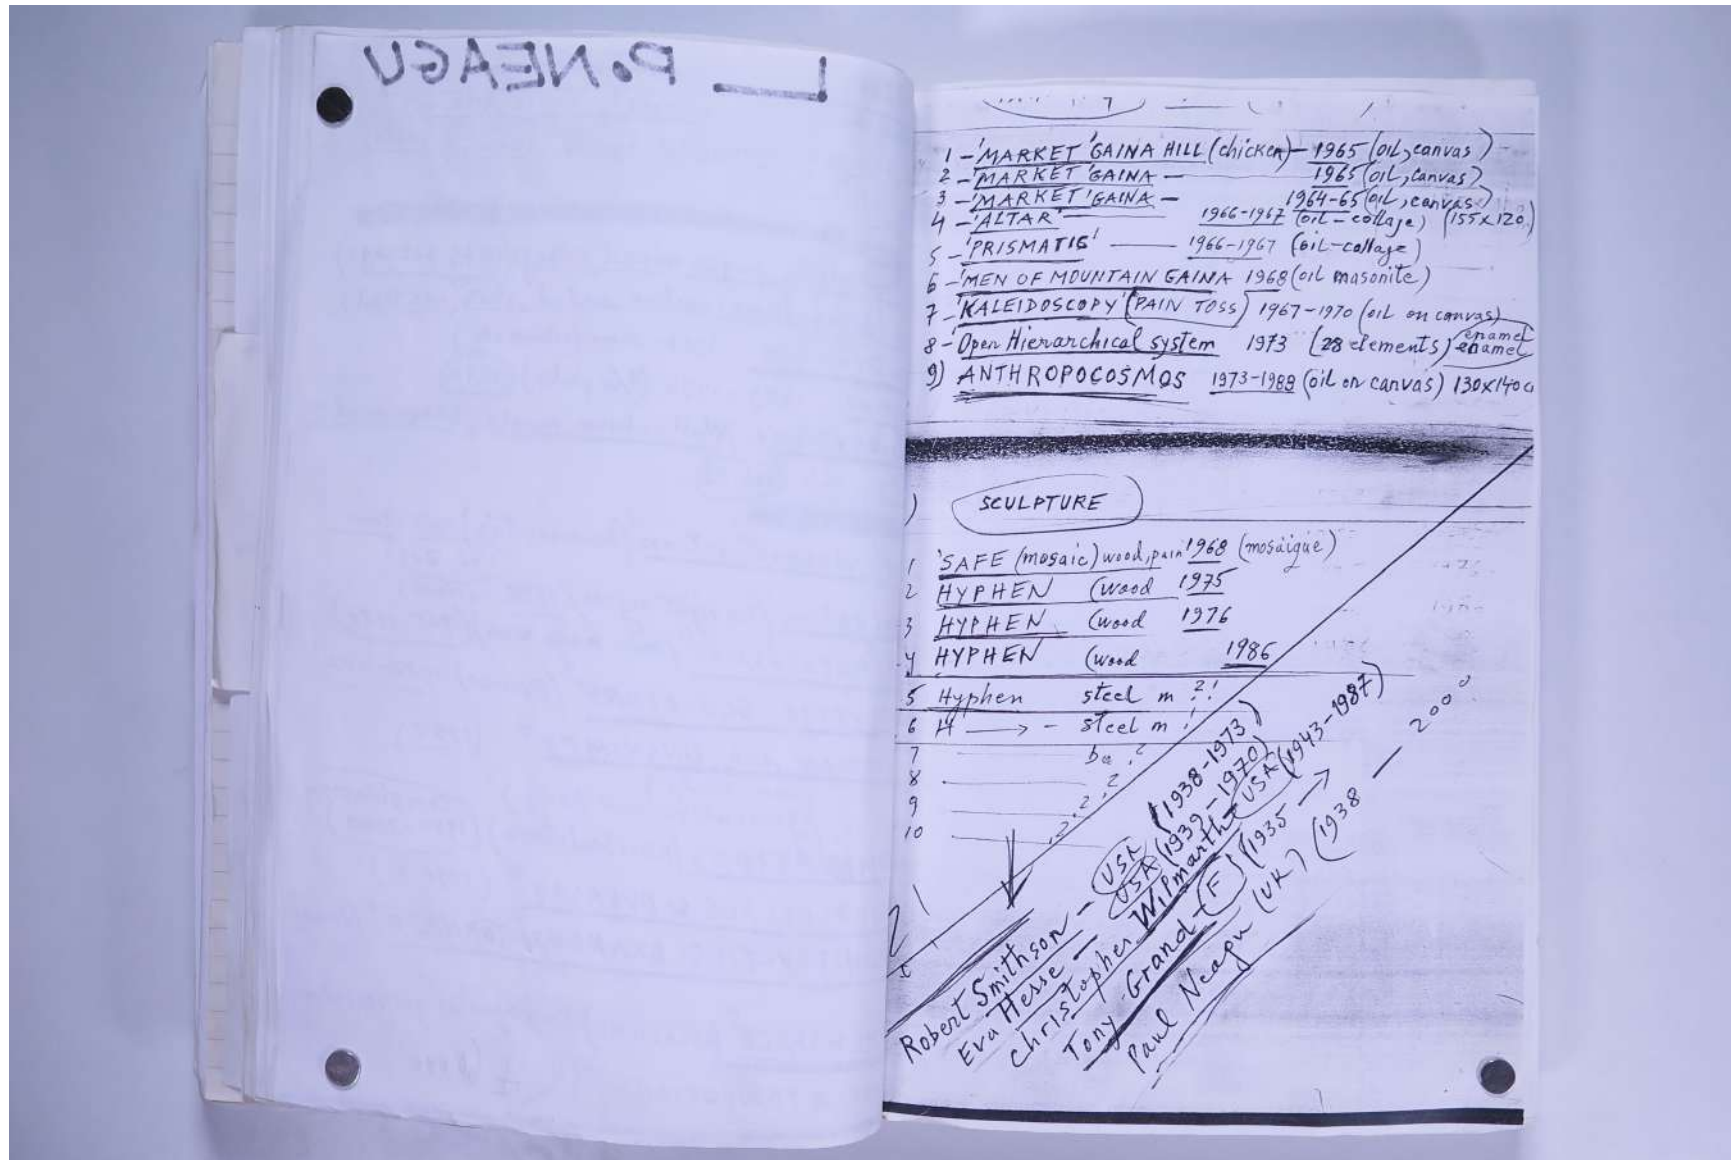 P. NEAGU
1 - 'MARKET' GAINA HILL (chicken) - 1965 (oil, canvas)
2 - 'MARKET' GAINA - 1965 (oil, canvas)
3 - 'MARKET' GAINA - 1964-65 (oil, canvas)
4 - 'ALTAR' 1966-1967 (oil - collage) (155x120)
5 - 'PRISMATIC' 1966-1967 (oil-collage)
6 - 'MEN OF MOUNTAIN GAINA 1968 (oil masonite)
7 - 'KALEIDOSCOPY' (PAIN TOSS) 1967-1970 (oil on canvas)
8 - 'Open Hierarchical system 1973 (28 elements) enamel
enamel
9) ANTHROPOCOSMOS 1973-1988 (oil on canvas) 130x140
SCULPTURE
1 'SAFE (mosaic) wood, pain 1968 (mosaique)
2 HYPHEN (wood 1975
3 HYPHEN (wood 1976
4 HYPHEN (wood 1986
5 Hyphen steel m ?!
6 H → - steel m !
7 ?
8 ?
9 2
10 2
Robert Smithson - USA (1938-1973)
Eva Hesse - USA (1939-1970)
Christopher Wilmarth - USA (1943-1987)
Tony Grand - (F) (1935 →
Paul Neagu (UK) (1938 — 2000